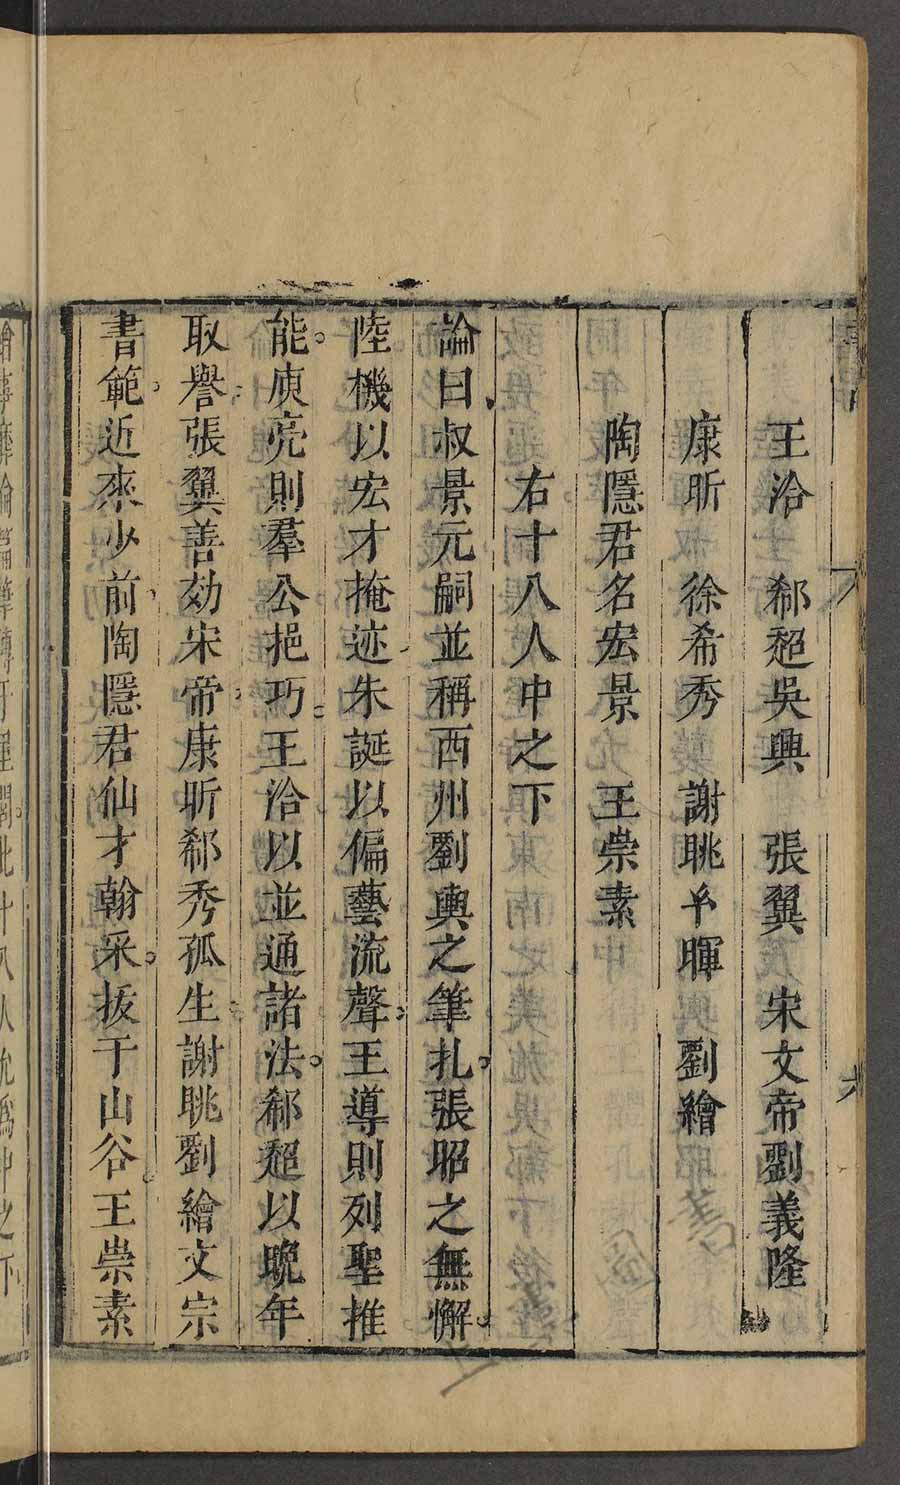 王洽　郗超吳興　張翼　宋文帝劉義隆
康昕　徐希秀　謝眺𠔃暉　劉繪
陶隱君名宏景　王崇素
右十八人中之下
論曰叔景元嗣並稱西州劉輿之筆扎張昭之無懈
陸機以宏才掩迹朱誕以偏藝流聲王導則列聖推
能庾亮則羣公挹巧王洽以並通諸法郗超以晚年
取譽張翼善効宋帝康昕郗秀孤生謝眺劉繪文宗
書範近來少前陶隱君仙才翰采拔于山谷王崇素